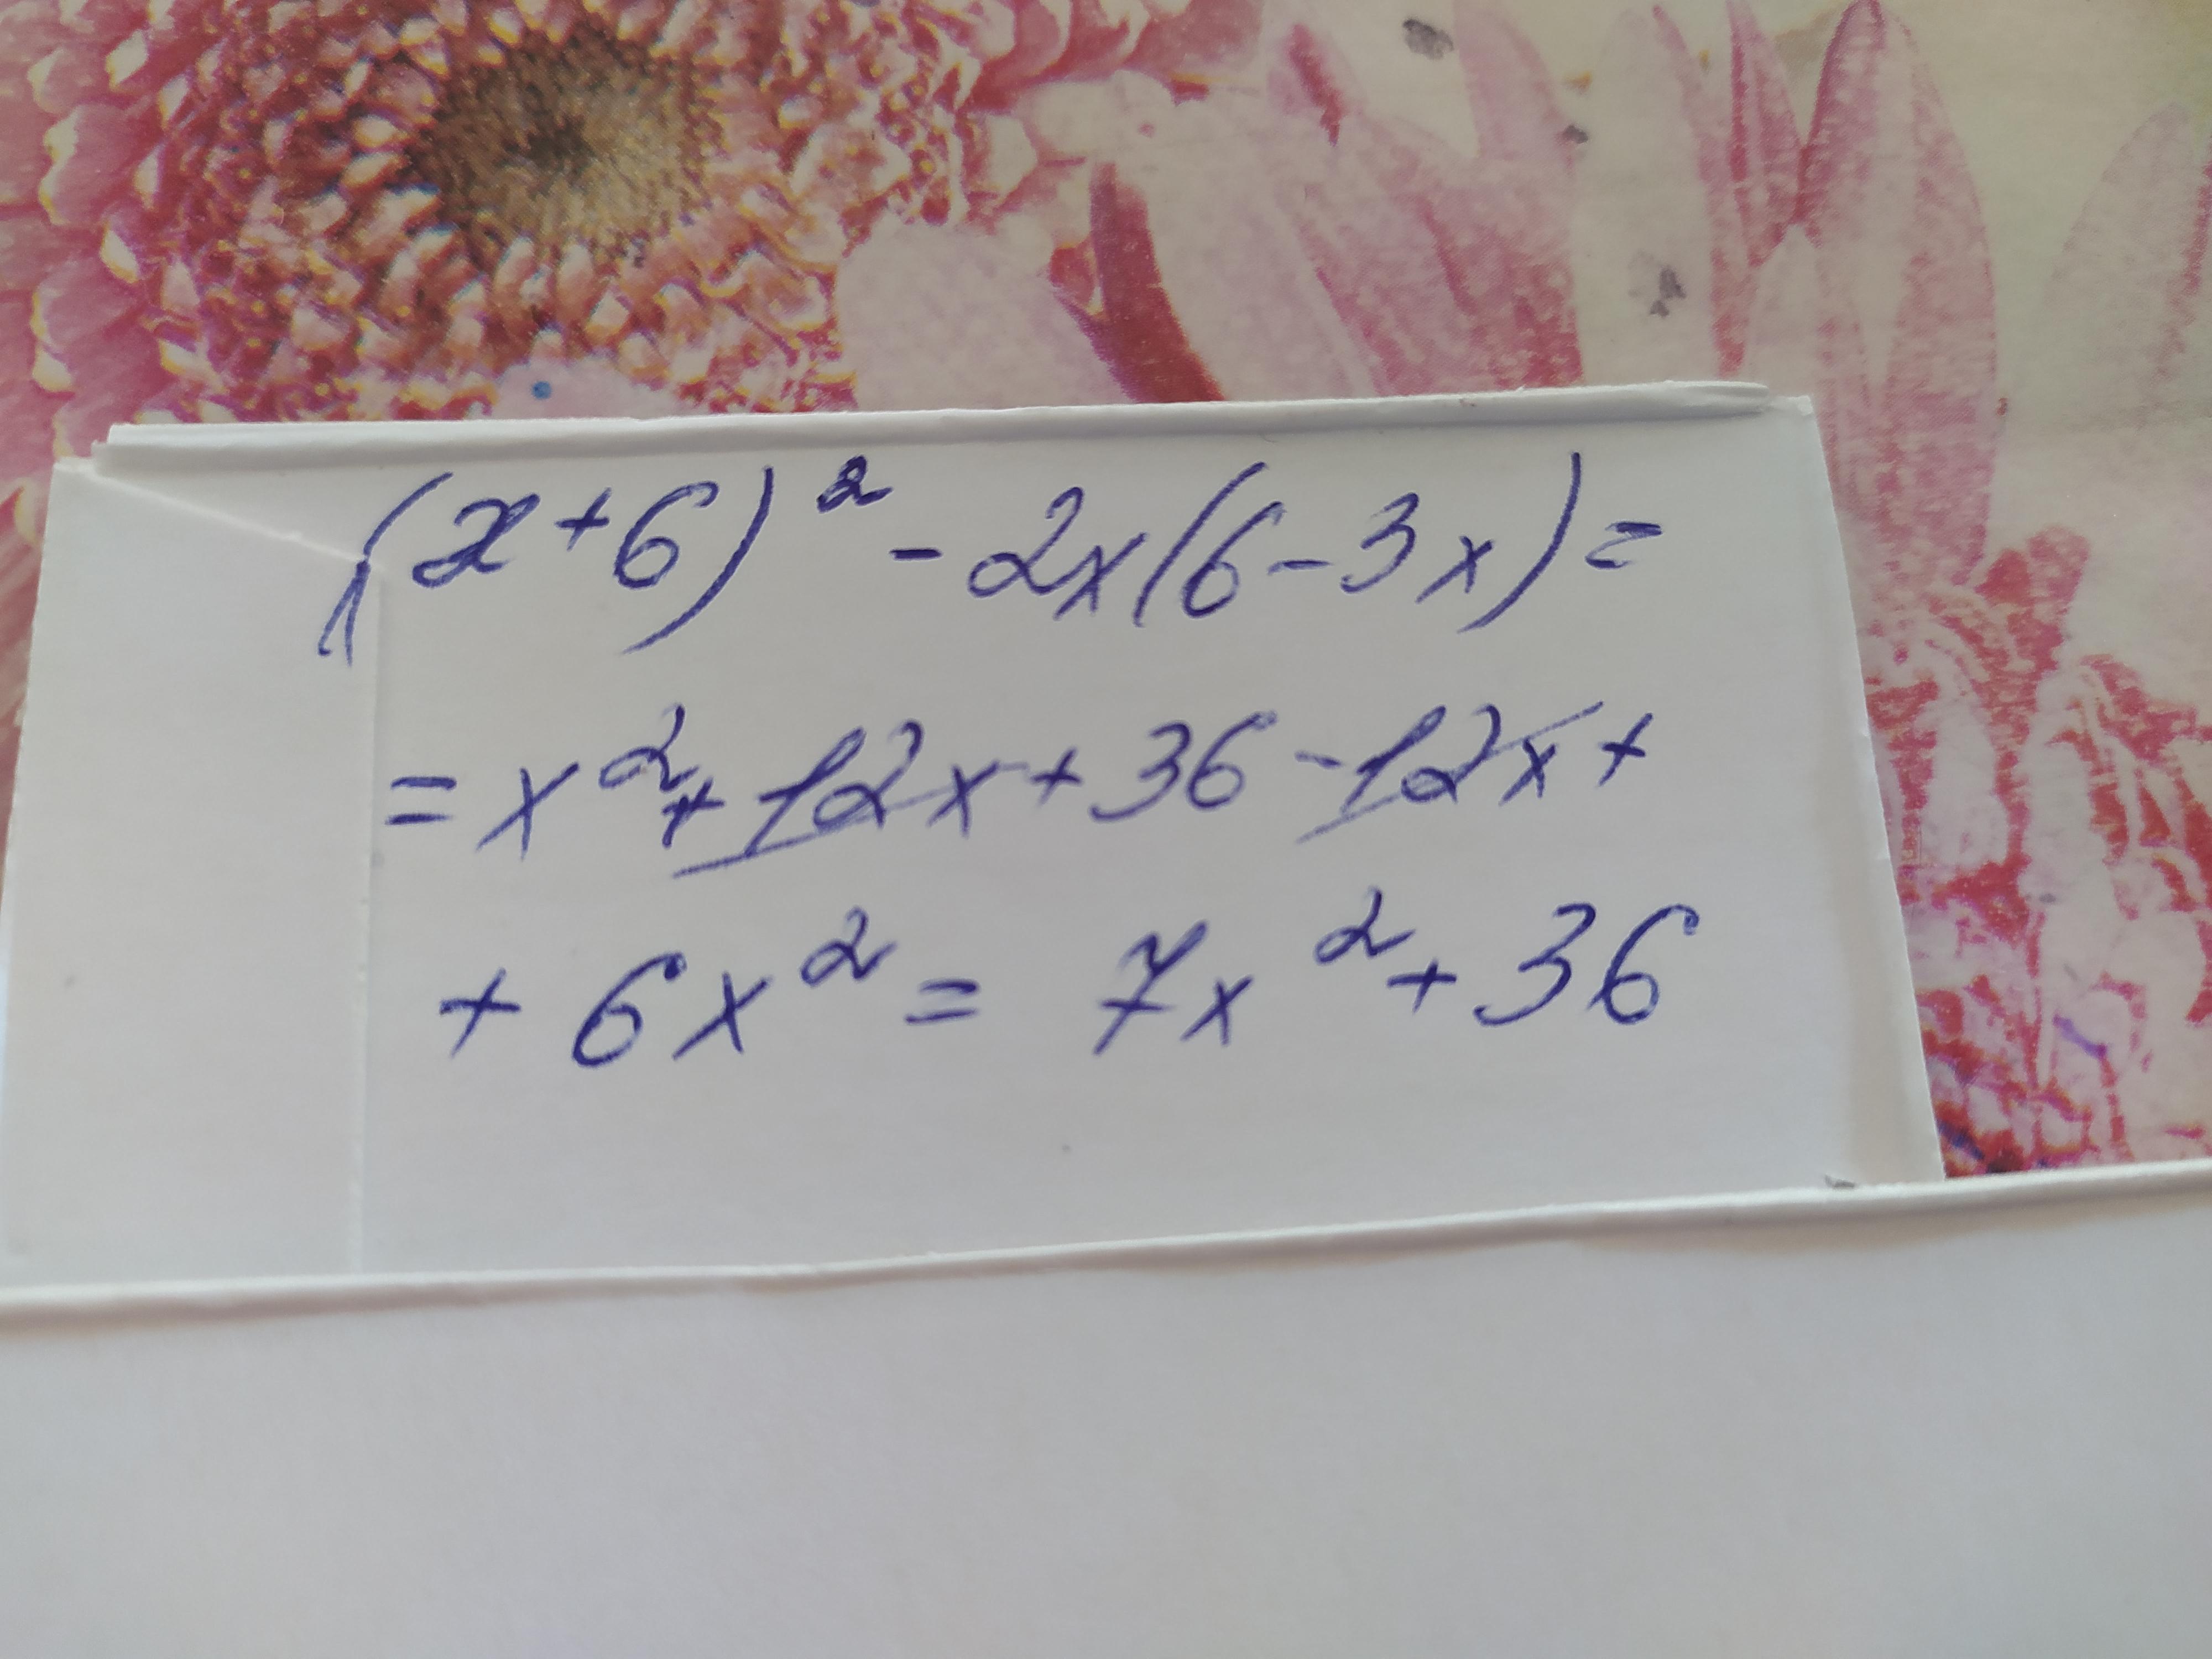 (x+6)² - 2x(6-3x) =
= x² + 12x + 36 - 12x +
+ 6x² = 7x² + 36